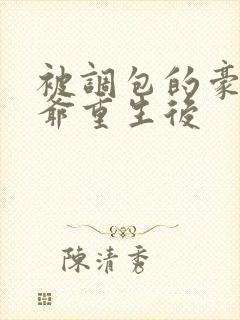 被調包的豪
爺重生後
陳清秀